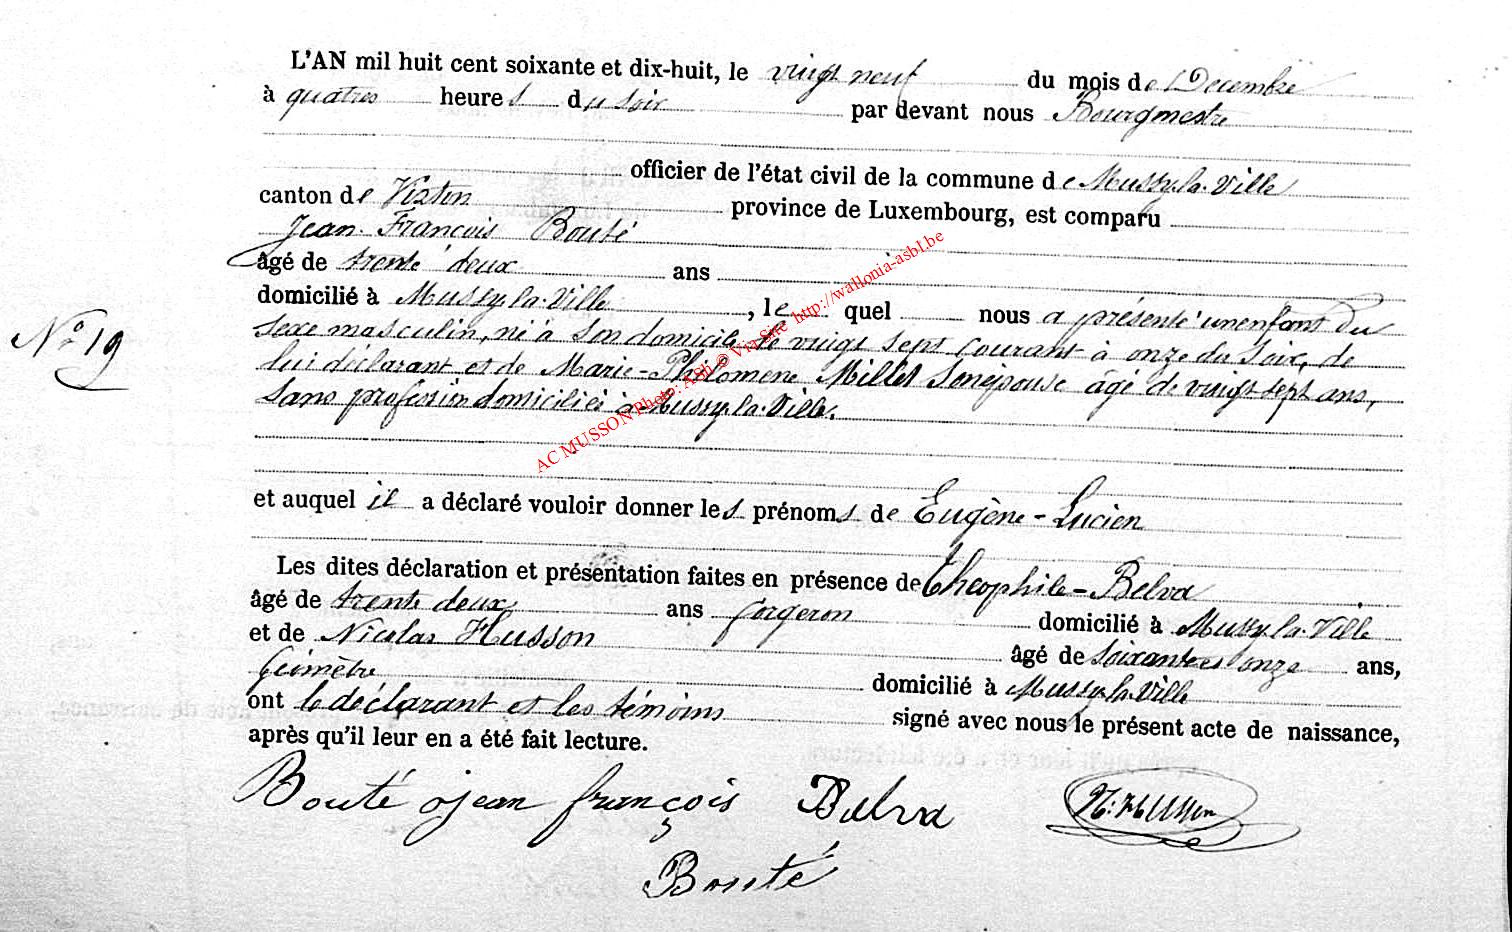 L'AN mil huit cent soixante et dix-huit, le vingt neuf du mois de Décembre
à quatres heures du soir par devant nous Bourgmestre
officier de l'état civil de la commune de Mussy-la-Ville
canton de Virton province de Luxembourg, est comparu
Jean François Bouté
âgé de trente deux ans
domicilié à Mussy-la-Ville, lequel nous a présenté un enfant du
N° 19
sexe masculin, né à son domicile le vingt sept courant à onze du soir, de
lui déclarant et de Marie-Philomène Millet son épouse âgé de vingt-sept ans,
sans profession domiciliés à Mussy-la-Ville.
et auquel il a déclaré vouloir donner les prénoms de Eugène-Lucien
Les dites déclaration et présentation faites en présence de Théophile-Belva
âgé de trente deux ans forgeron domicilié à Mussy-la-Ville
et de Nicolas Husson âgé de soixante et onze ans,
Géomètre domicilié à Mussy-la-Ville
ont le déclarant et les témoins signé avec nous le présent acte de naissance,
après qu'il leur en a été fait lecture.
Bouté jean françois Belva N. Husson
Bouté
AC MUSSON Photo: ASh © Via Site http://wallonia-asbl.be